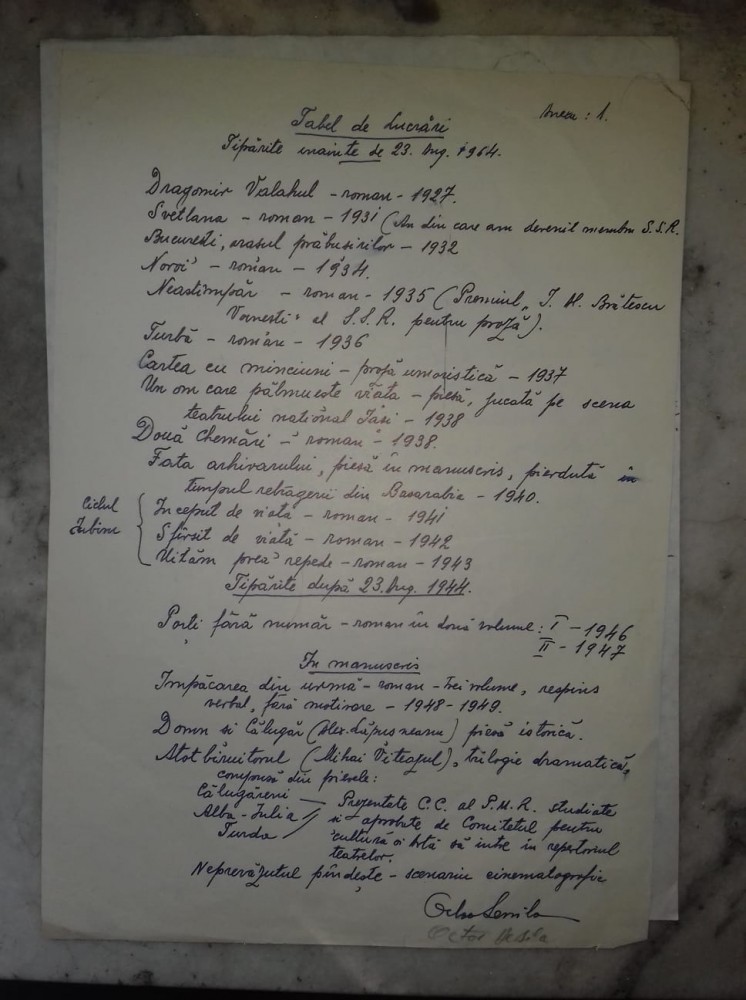 Anexa : 1.
Tabel de Lucrări
Tipărite inainte de 23. Aug. 1964.
Dragomir Valahul - roman - 1927.
Svetlana - roman - 1931 (An din care am devenit membru S.S.R.
București, orașul prăbușirilor - 1932
Noroi - roman - 1934.
Neastîmpăr - roman - 1935 (Premiul „I. Al. Brătescu
Voinești" al S.S.R. pentru proză).
Turbă - roman - 1936
Cartea cu minciuni - proză umoristică - 1937
Un om care pălmuește viața - piesă, jucată pe scena
teatrului național Iași - 1938
Două chemări - roman - 1938.
Fata arhivarului, piesă în manuscris, pierdută in
timpul retragerii din Basarabia - 1940.
Ciclul Iubire
Inceput de viată - roman - 1941
Sfîrsit de viată - roman - 1942
Uităm prea repede - roman - 1943
Tipărite după 23. Aug. 1944.
Porti fără număr - roman în două volume: I - 1946
II - 1947
In manuscris
Impăcarea din urmă - roman - trei volume, respins
verbal, fără motivare - 1948-1949.
Domn si Călugăr (Alex. Lăpusneanu) piesă istorică.
Atotbiruitorul (Mihai Viteazul), trilogie dramatică,
compusă din piesele:
Călugăreni
Alba-Iulia
Turda
Prezentate C.C. al P.M.R. studiate
si aprobate de Comitetul pentru
cultură si Artă să intre in repertoriul
teatrelor.
Neprevăzutul pîndește - scenariu cinematografic